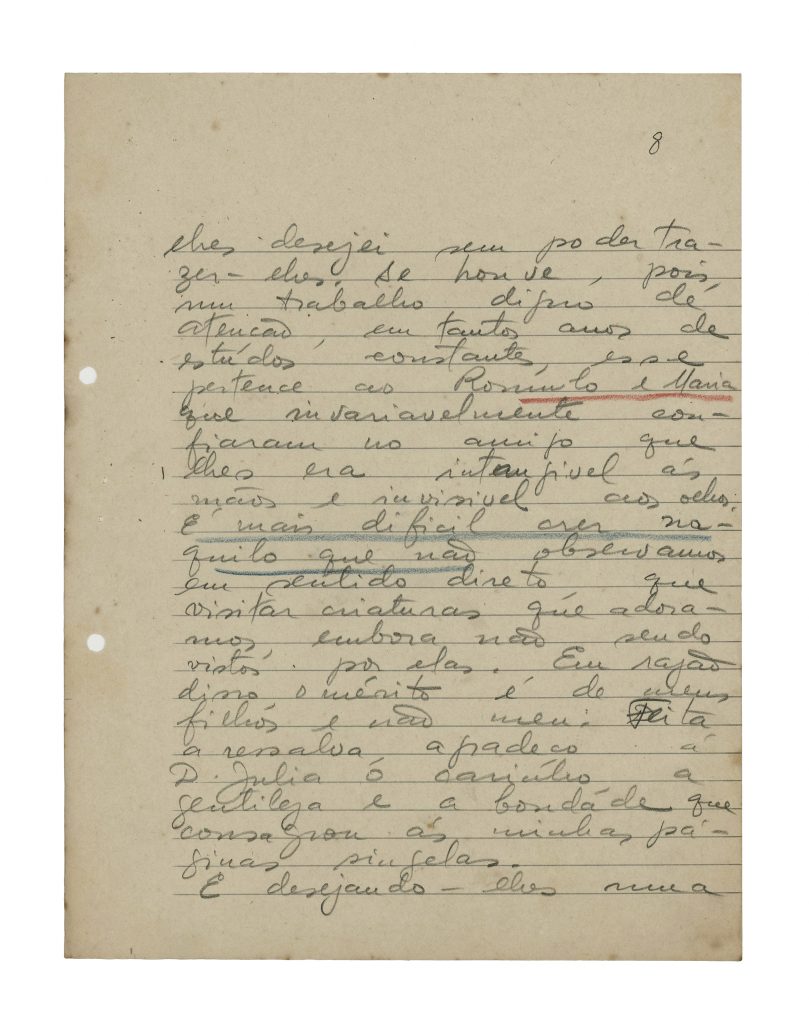 8
lhes desejei sem poder tra-
zer-lhes. Se houve, pois,
um trabalho digno de
atencão, em tantos anos de
estúdos constantes, esse
pertence ao Romulo e Maria
que invariavelmente con-
fiaram no amigo que
lhes era intangivel ás
mãos e invisivel aos olhos.
E' mais dificil crer na-
quilo que não observamos
em sentido direto que
visitar criaturas que adora-
mos, embora não sendo
vistos por elas. Em razão
disso o mérito é de meus
filhos e não meu. Feita
a ressalva, agradeco á
D. Julia o carinho a
gentileza e a bondade que
consagrou ás minhas pá-
ginas singelas.
E desejando-lhes uma